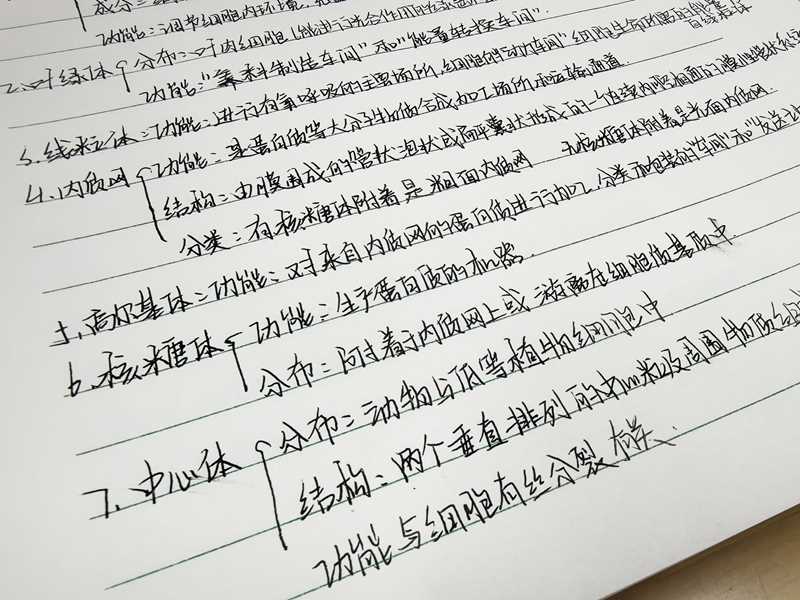 成分：
功能：调节细胞内环境，
2.叶绿体 分布：叶肉细胞
功能："养料制造车间"和"能量转换车间"
3.线粒体：功能：进行有氧呼吸的主要场所，细胞的"动力车间" 细胞生命所需的能量
4.内质网 功能：是蛋白质等大分子物质合成、加工场所和运输通道.
结构：由膜围成的管状、泡状或扁平囊状形成的一个连续内腔相通的膜性管道系统
分类：有核糖体附着是粗面内质网 无核糖体附着是光面内质网.
5.高尔基体：功能：对来自内质网的蛋白质进行加工,分类和包装的"车间"和"发送站
6.核糖体 功能：生产蛋白质的机器.
分布：附着于内质网上或游离在细胞质基质中
7.中心体 分布：动物与低等植物细胞中
结构：两个垂直排列的中心粒及周围物质组成
功能与细胞有丝分裂有关.